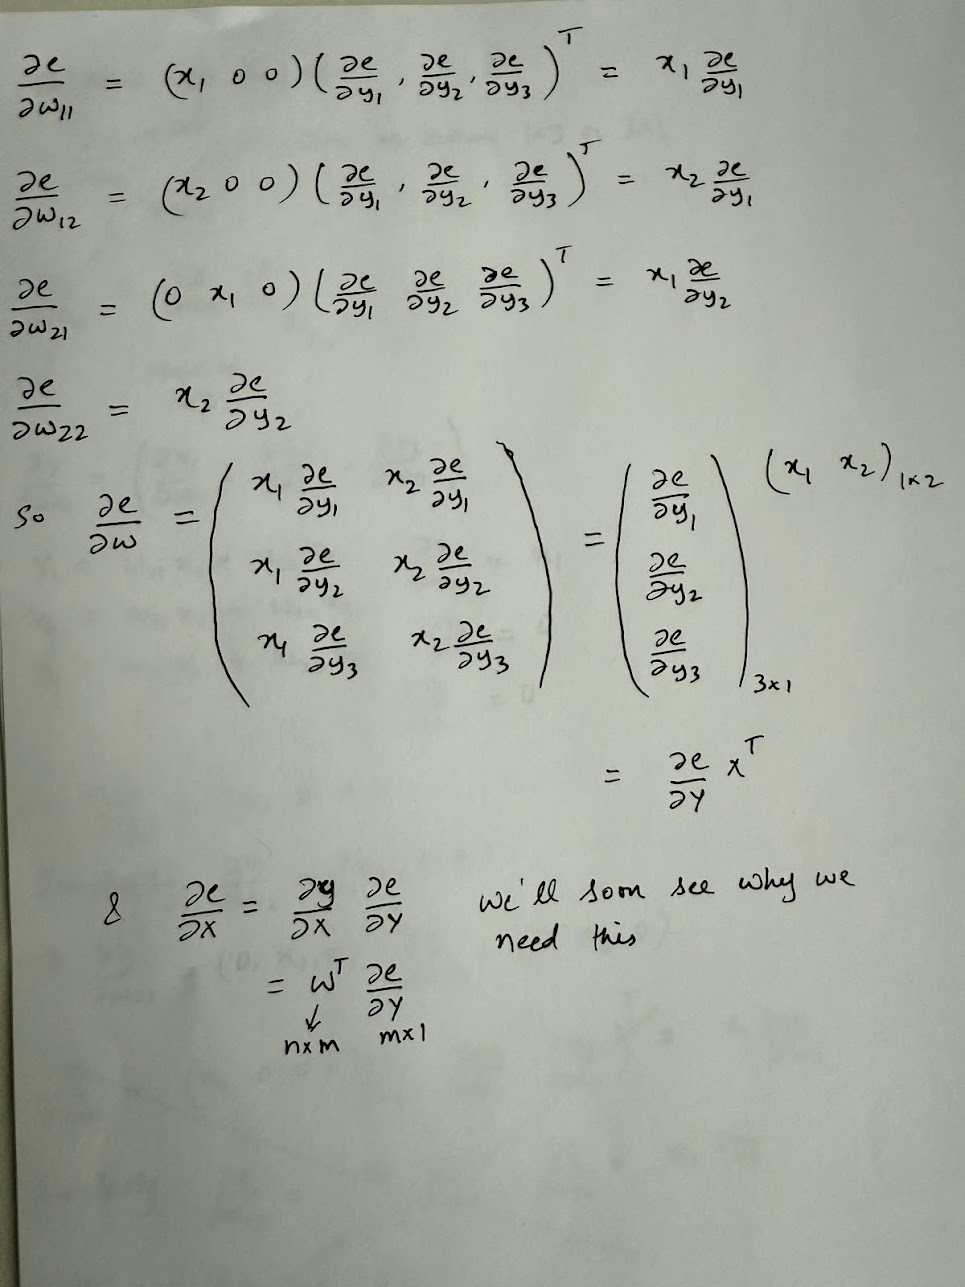 ∂e/∂w₁₁ = (x₁ 0 0) (∂e/∂y₁, ∂e/∂y₂, ∂e/∂y₃)ᵀ = x₁ ∂e/∂y₁
∂e/∂w₁₂ = (x₂ 0 0) (∂e/∂y₁, ∂e/∂y₂, ∂e/∂y₃)ᵀ = x₂ ∂e/∂y₁
∂e/∂w₂₁ = (0 x₁ 0) (∂e/∂y₁ ∂e/∂y₂ ∂e/∂y₃)ᵀ = x₁ ∂e/∂y₂
∂e/∂w₂₂ = x₂ ∂e/∂y₂
So ∂e/∂w = ( x₁ ∂e/∂y₁ x₂ ∂e/∂y₁
x₁ ∂e/∂y₂ x₂ ∂e/∂y₂
x₁ ∂e/∂y₃ x₂ ∂e/∂y₃ ) = ( ∂e/∂y₁
∂e/∂y₂
∂e/∂y₃ )₃ₓ₁ (x₁ x₂)₁ₓ₂
= ∂e/∂Y Xᵀ
& ∂e/∂X = ∂y/∂X ∂e/∂Y we'll soon see why we
need this
= Wᵀ ∂e/∂Y
↓
n×m m×1